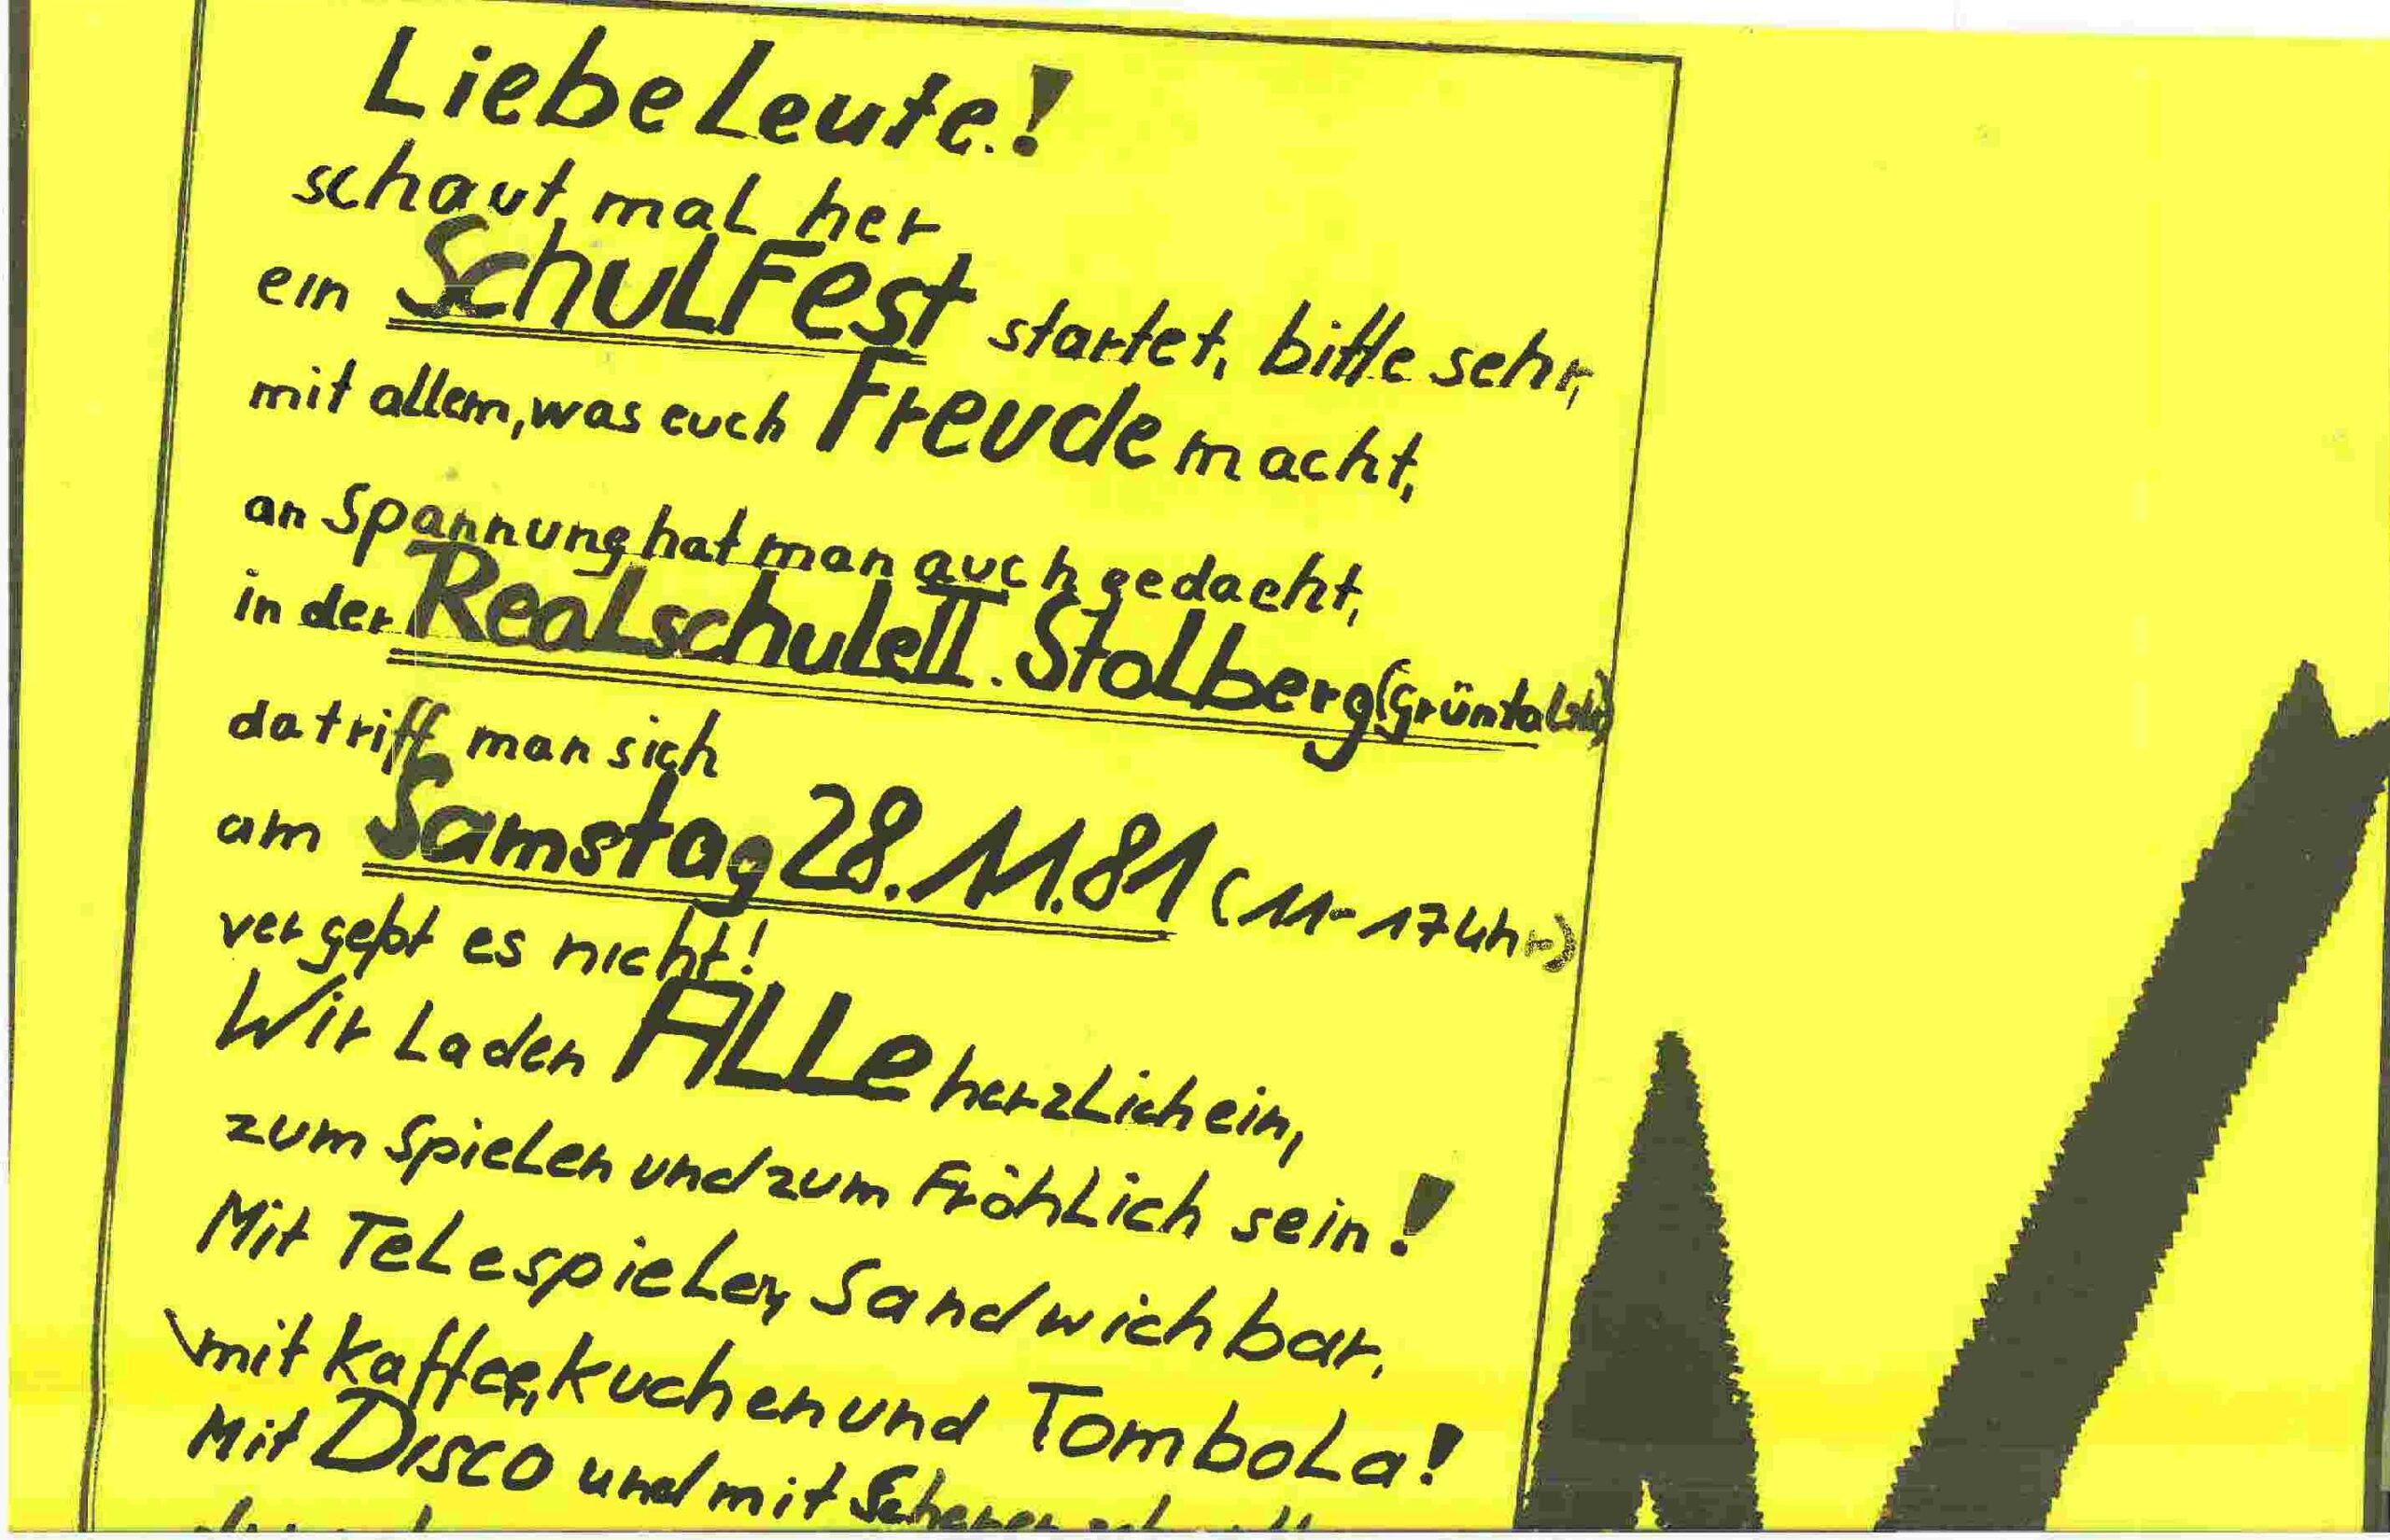 Liebe Leute!
schaut mal her
ein Schulfest startet, bitte sehr,
mit allem, was euch Freude macht,
an Spannung hat man auch gedacht,
in der Realschule II. Stolberg (Grüntalstr)
da triff man sich
am Samstag 28.11.81 (11-17 Uhr)
vergeßt es nicht!
Wir laden ALLe herzlich ein,
zum Spielen und zum Fröhlich sein!
Mit Telespielen, Sandwichbar,
mit Kaffee, Kuchen und Tombola!
Mit Disco und mit